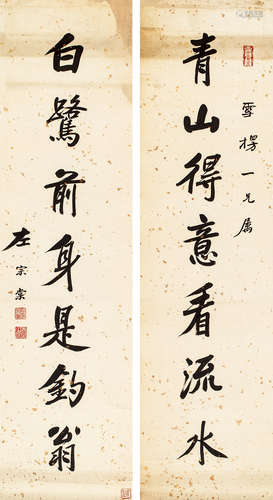 青山得意看流水
雪楞一兄屬
白鷺前身是釣翁
左宗棠